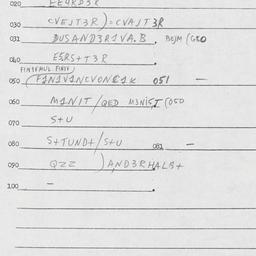 020 EE4RD3R
030 CVEJT3R)=CVAJT3R
031 BUSAND3R1VA.B. BEJM (GEO
040 ESRS+T3R
FINTFAUL FINT)
050 (F1N1V1NCVONC1K 051 —
060 M1NIT/QED M3NIST (050
070 S+U
080 S+TUND+/S+U 081 —
090 QZZ )AND3RHALB+
100 —